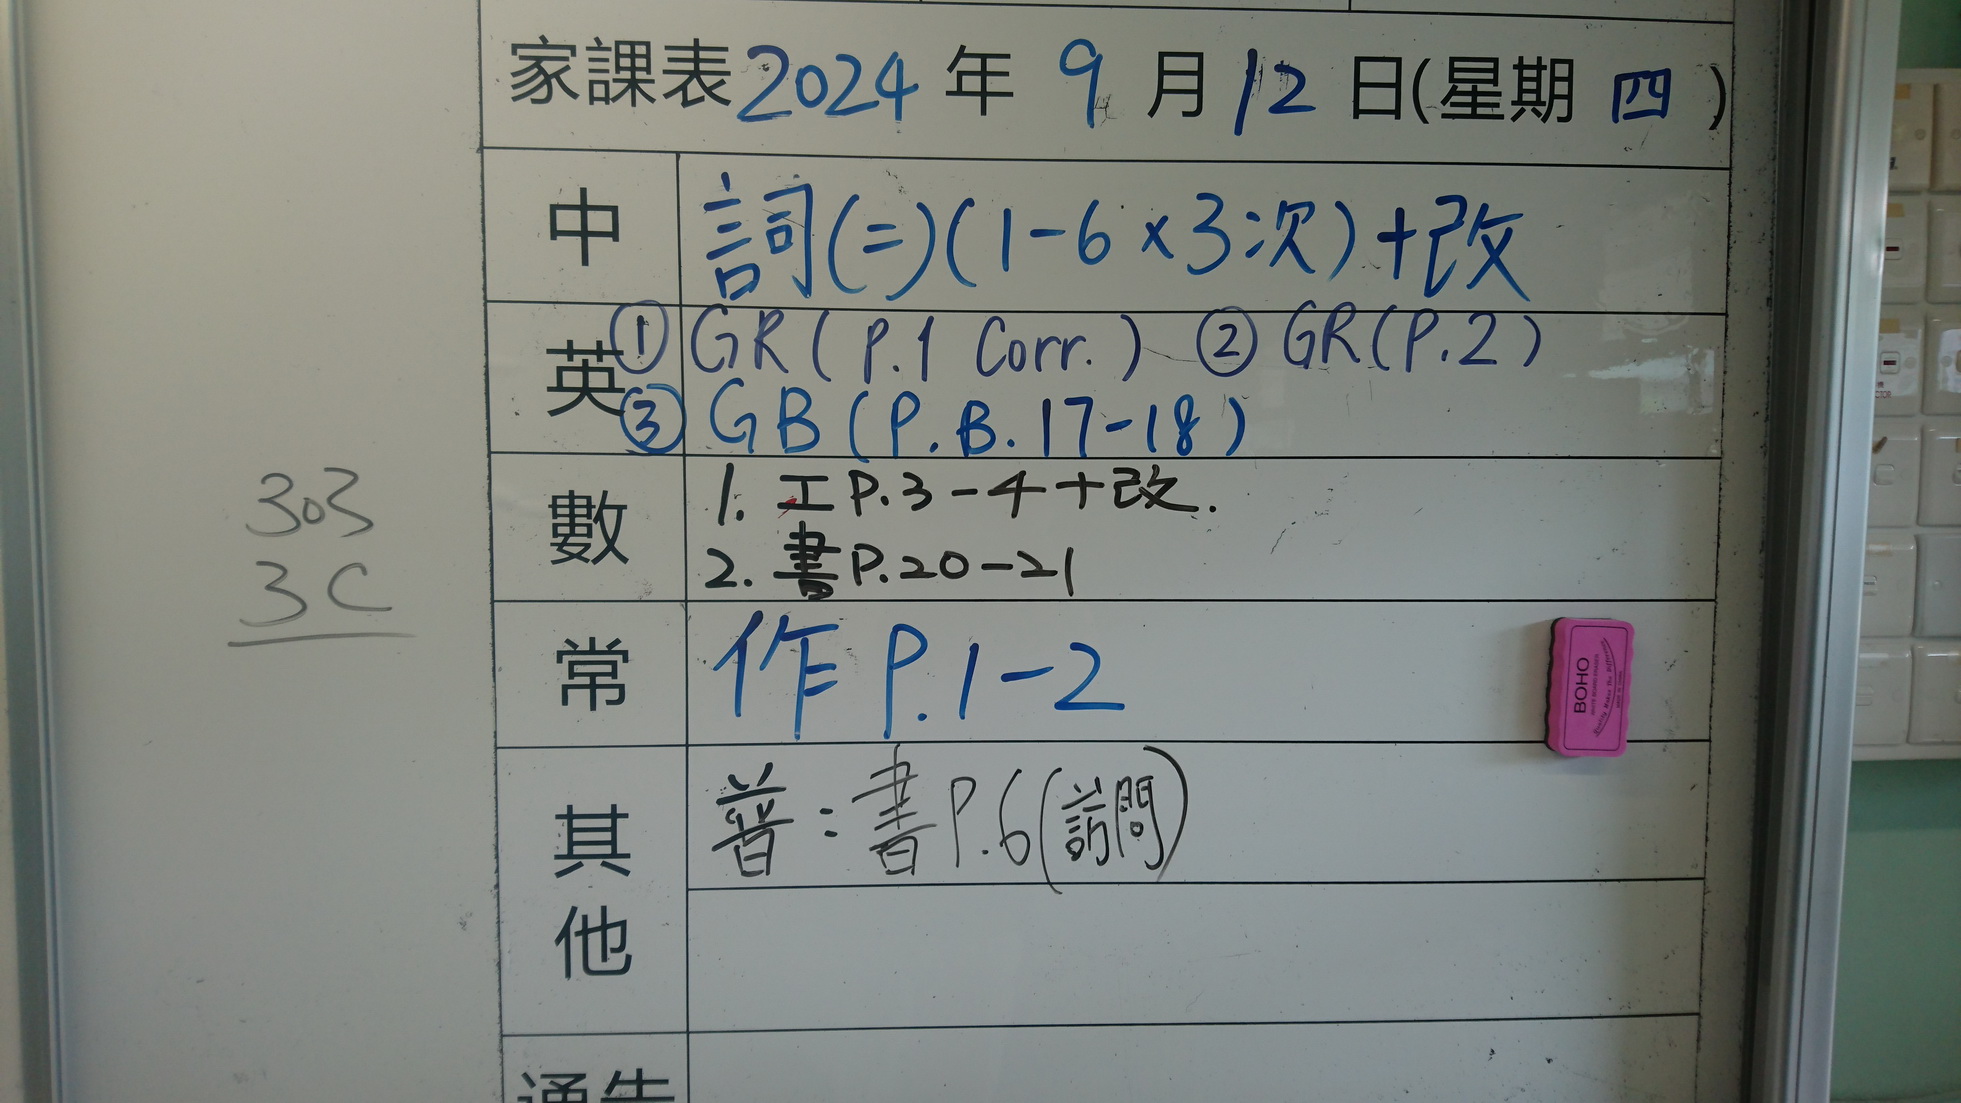 家課表 2024 年 9 月 12 日(星期 四 )
中 詞(二)(1-6×3次)+改
英 ① GR ( P.1 Corr. ) ② GR(P.2)
③ GB (P.B.17-18)
數 1. 工P.3-4+改.
2. 書P.20-21
常 作 P.1-2
其他 普：書P.6(訪問)
通告
303
3C
BOHO